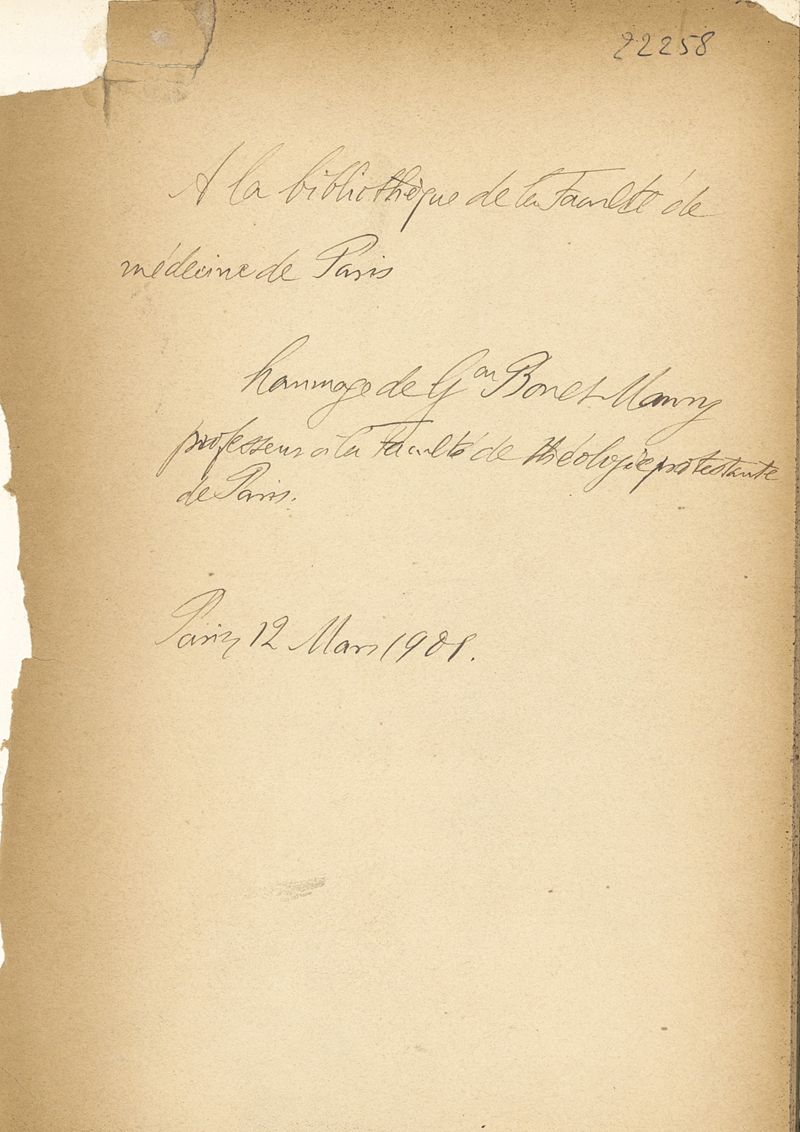 22258
A la bibliothèque de la Faculté de
médecine de Paris
hommage de Gon Bonet-Maury
professeur à la Faculté de théologie protestante
de Paris.
Paris 12 Mars 1901.